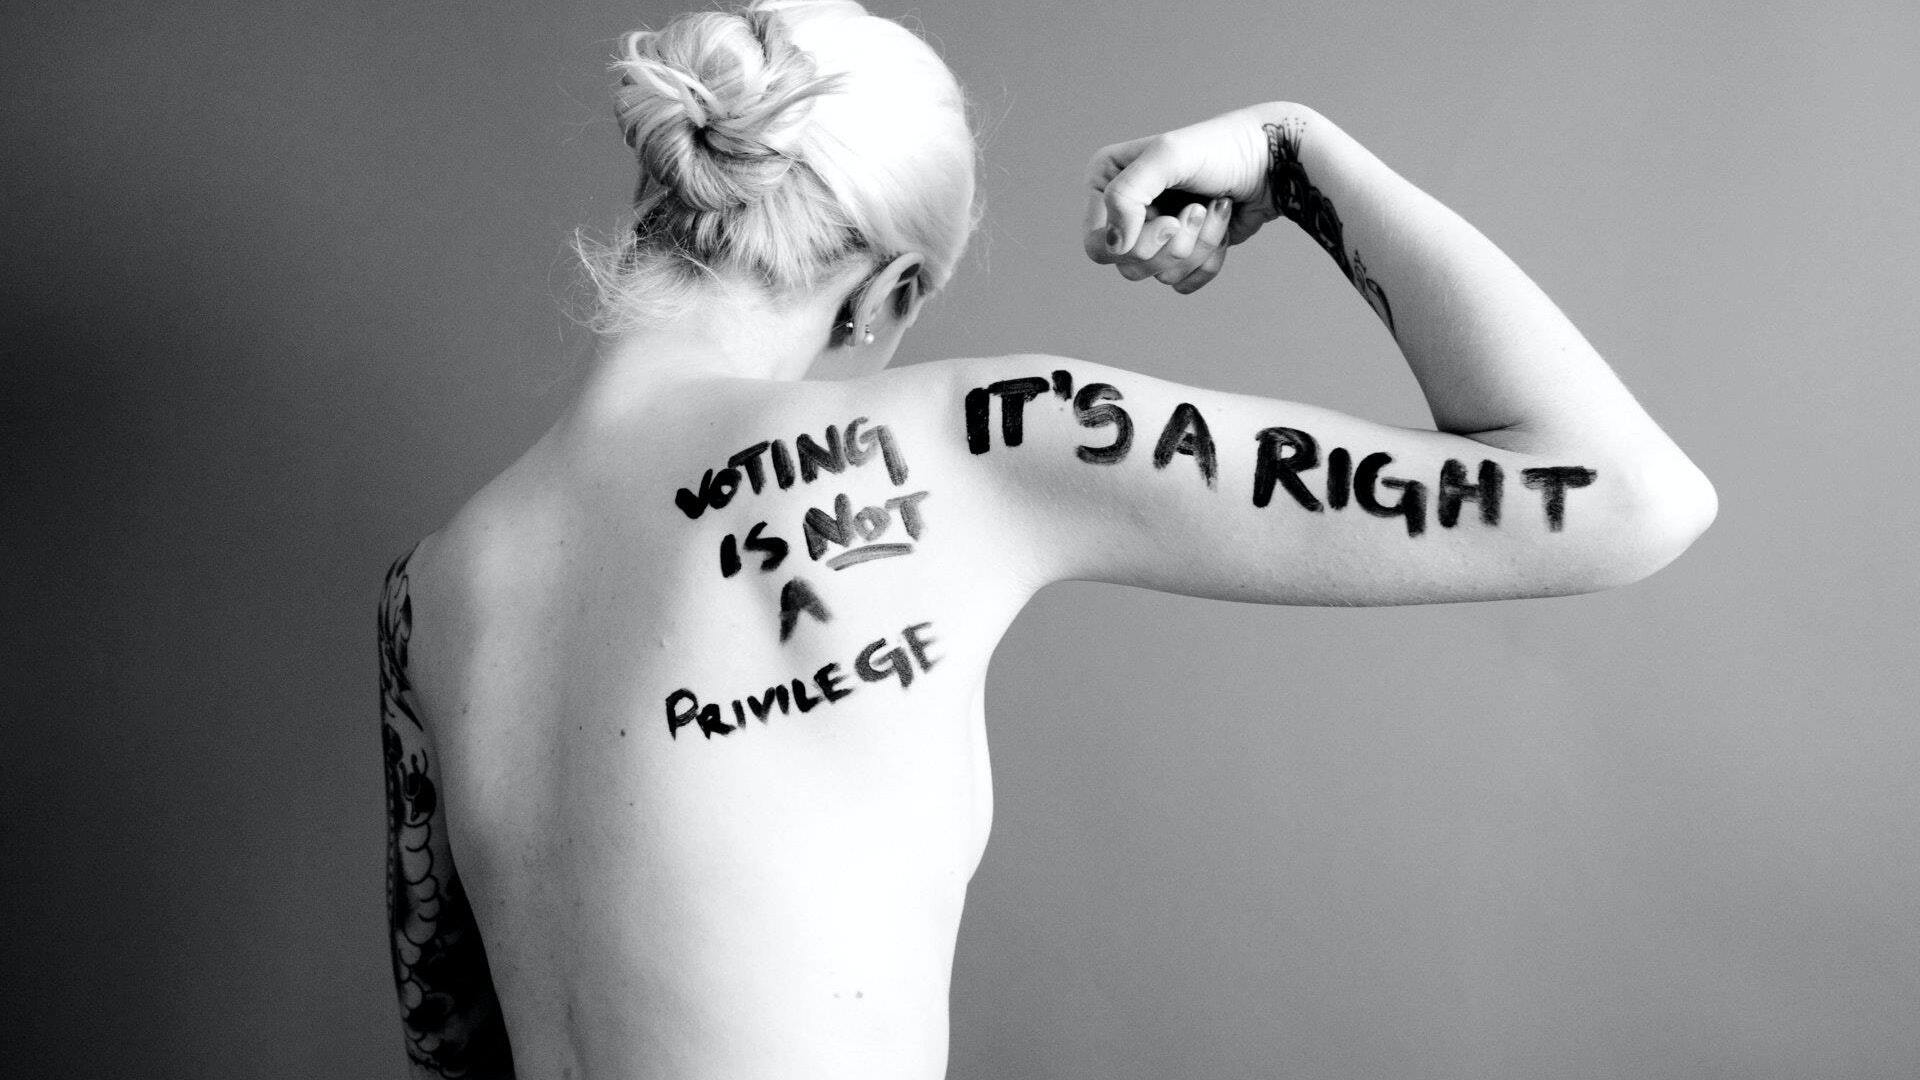 VOTING
IS NOT
A
PRIVILEGE
IT'S A RIGHT